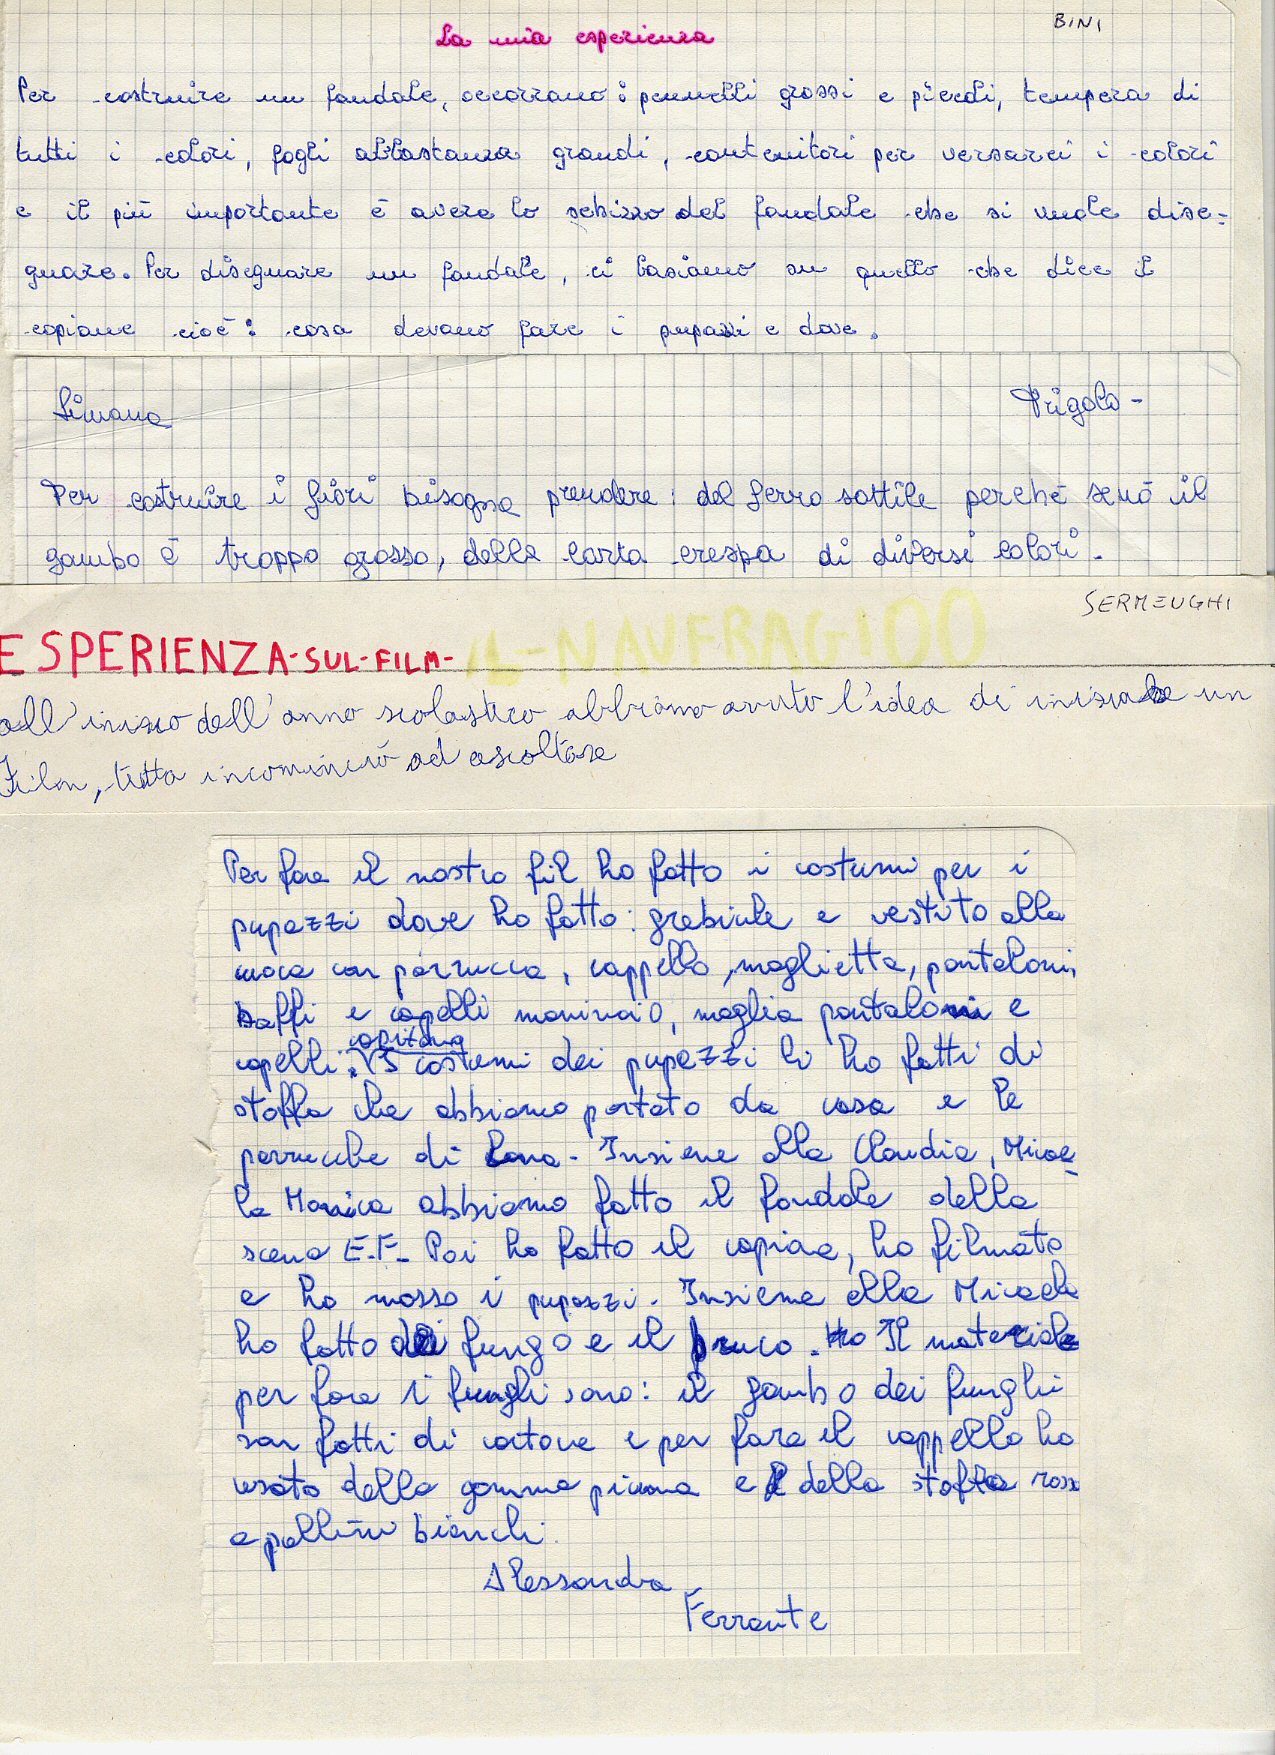 BINI
La mia esperienza
Per costruire un fondale, occorrano: pennelli grossi e piccoli, tempera di
tutti i colori, fogli abbastanza grandi, contenitori per versarci i colori
e il più importante è avere lo schizzo del fondale che si vuole dise=
gnare. Per disegnare un fondale, ci basiamo su quello che dice il
copione cioè: cosa devono fare i pupazzi e dove.
Simona Trigolo-
Per costruire i fiori bisogna prendere: del ferro sottile perché senò il
gambo è troppo grosso, della carta crespa di diversi colori.
SERMENGHI
ESPERIENZA-SUL-FILM- IL-NAUFRAGIOO
all'inizio dell'anno scolastico abbiamo avuto l'idea di iniziare un
Film, tutto incominciò ad ascoltare
Per fare il nostro fil ho fatto i costumi per i
pupazzi dove ho fatto: grebiule e vestito alla
cuoca con parrucca, cappello, maglietta, pantaloni,
baffi e capelli marinaio, maglia pantaloni e
capitano
capelli. I costumi dei pupazzi li ho fatti di
stoffa che abbiamo portato da casa e le
parrucche di lana- Insieme alla Claudia, Micae-
la Monica abbiamo fatto il fondale della
scena E-F- Poi ho fatto il copione, ho filmato
e ho mosso i pupazzi. Insieme alla Micaela
ho fatto fungo e il bruco. Il materiale
per fare i funghi sono: il gambo dei funghi
son fatti di cartone e per fare il cappello ho
usato della gomma piuma e della stoffa rossa
a pallini bianchi.
Alessandra
Ferrante